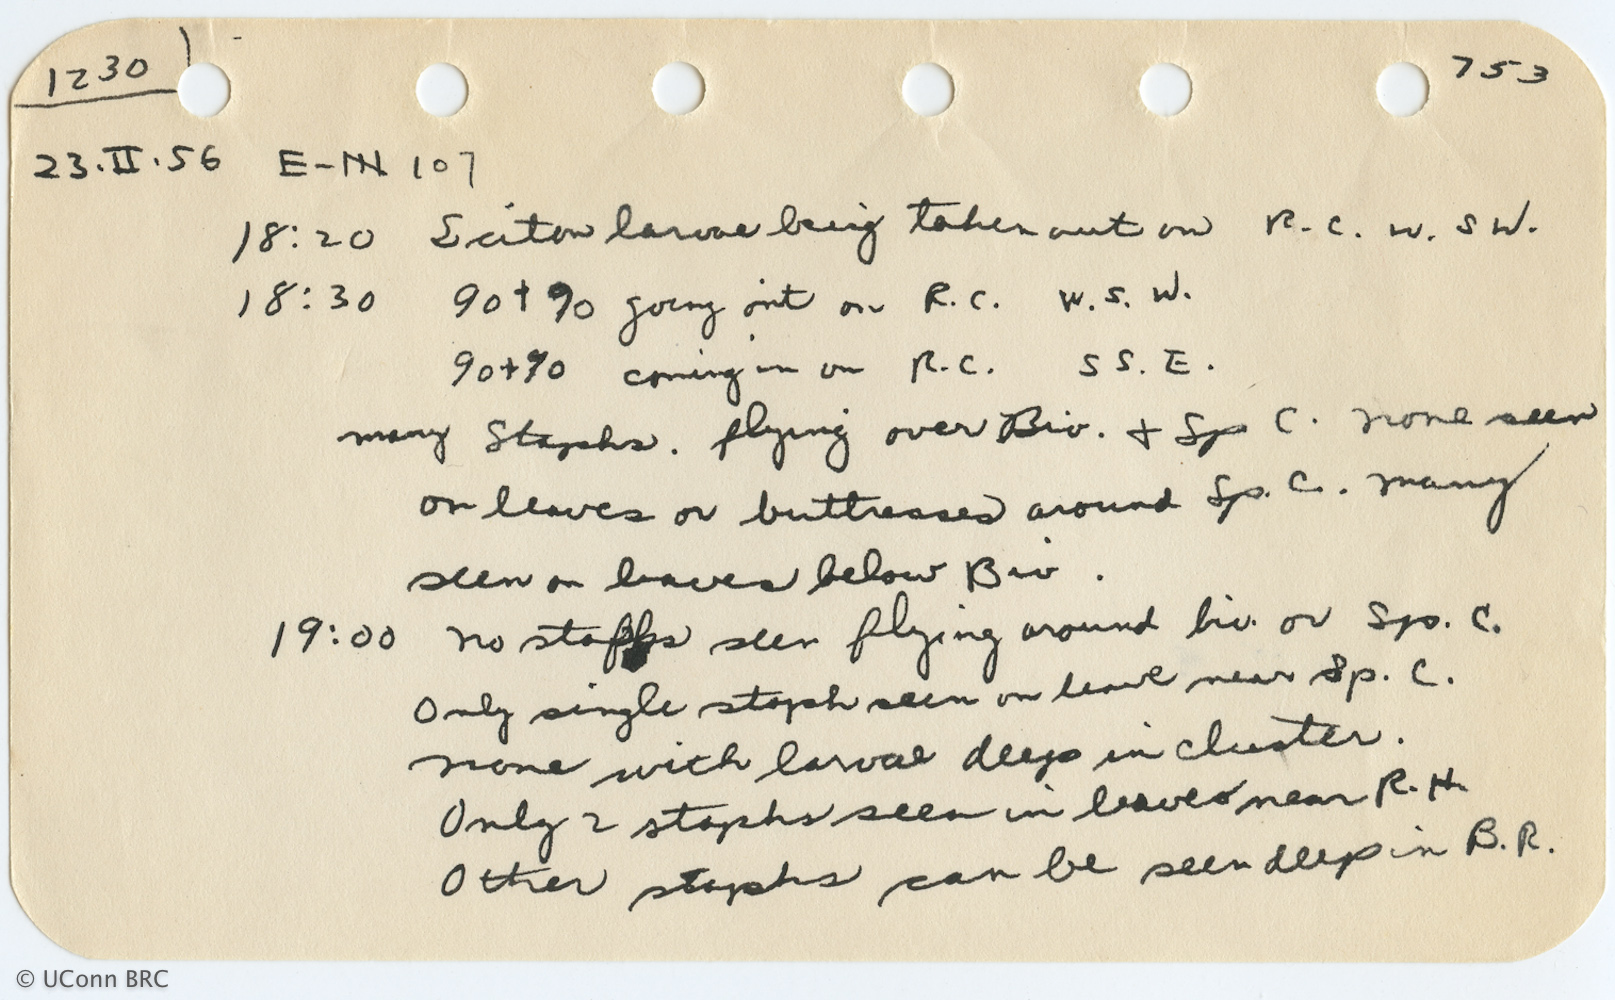 1230
753
23.II.56 E-NN 107
18:20 Eciton larvae being taken out on R.C. W.SW.
18:30 90+90 going out on R.C. W.S.W.
90+90 coming in on R.C. SS.E.
many Staphs. flying over Biv. + Sp C. none seen
on leaves or buttresses around Sp. C. many
seen on leaves below Biv.
19:00 no staphs seen flying around biv. or Sp. C.
Only single staph seen on leave near Sp. C.
none with larvae deep in cluster.
Only 2 staphs seen in leaves near R.H.
Other staphs can be seen deep in B.R.
© UConn BRC